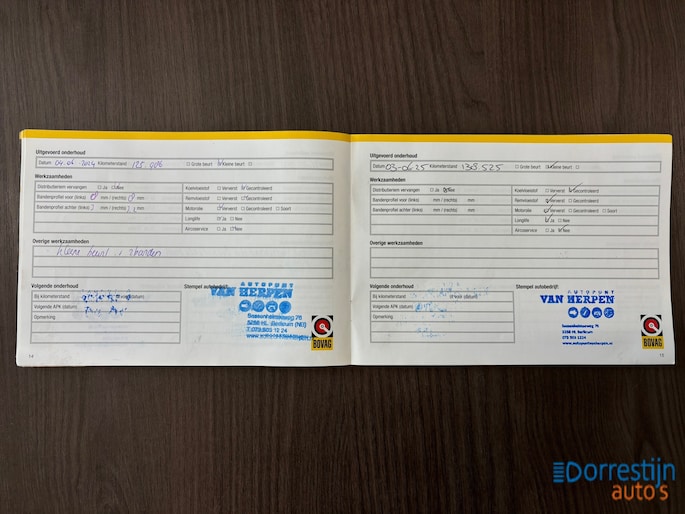 Uitgevoerd onderhoud
Datum 04.06.2024 Kilometerstand 125.006 Grote beurt Kleine beurt
Werkzaamheden
Distributieriem vervangen Ja Nee
Bandenprofiel voor (links) mm / (rechts) mm
Bandenprofiel achter (links) mm / (rechts) mm
Koelvloeistof Ververst Gecontroleerd
Remvloeistof Ververst Gecontroleerd
Motorolie Ververst Gecontroleerd Soort
Longlife Ja Nee
Aircoservice Ja Nee
Overige werkzaamheden
Kleine beurt + 2banden
Volgende onderhoud
Bij kilometerstand of voor (datum)
Volgende APK (datum)
Opmerking
Stempel autobedrijf:
AUTOPUNT
VAN HERPEN
5258 HL Berlicum (NB)
BOVAG
14
Uitgevoerd onderhoud
Datum 03-06-25 Kilometerstand 138.525 Grote beurt Kleine beurt
Werkzaamheden
Distributieriem vervangen Ja Nee
Bandenprofiel voor (links) mm / (rechts) mm
Bandenprofiel achter (links) mm / (rechts) mm
Koelvloeistof Ververst Gecontroleerd
Remvloeistof Ververst Gecontroleerd
Motorolie Ververst Gecontroleerd Soort
Longlife Ja Nee
Aircoservice Ja Nee
Overige werkzaamheden
Volgende onderhoud
Bij kilometerstand of voor (datum)
Volgende APK (datum)
Opmerking
Stempel autobedrijf:
AUTOPUNT
VAN HERPEN
BOVAG
15
Dorrestijn
auto's